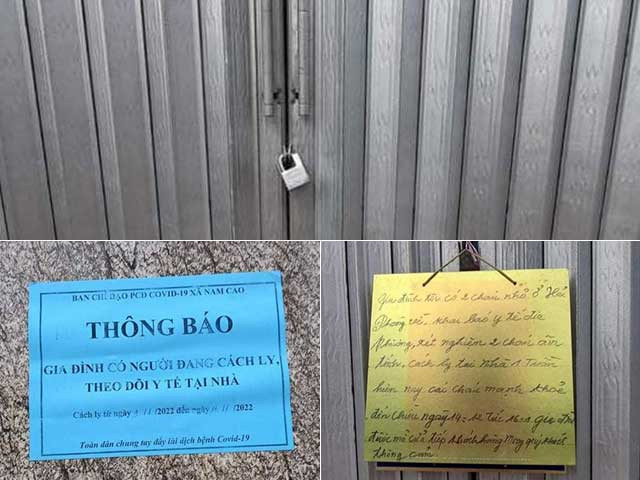 BAN CHỈ ĐẠO PCD COVID-19 XÃ NAM CAO
THÔNG BÁO
GIA ĐÌNH CÓ NGƯỜI ĐANG CÁCH LY,
THEO DÕI Y TẾ TẠI NHÀ
Cách ly từ ngày /11 /2022 đến ngày /11 /2022
Toàn dân chung tay đẩy lùi dịch bệnh Covid-19
Gia đình tôi có 2 cháu nhỏ ở Hải
Phòng về, khai báo y tế địa
Phương, xét nghiệm 2 cháu âm
tính, cách ly tại nhà 1 tuần
hiện nay các cháu mạnh khoẻ
đến chiều ngày 14
mở cửa tiếp khách hàng mong quý khách
thông cảm.